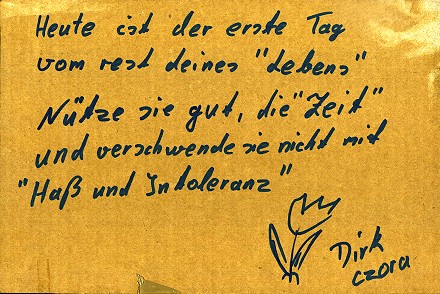 Heute ist der erste Tag
vom rest deines "Lebens"
Nütze sie gut, die "Zeit"
und verschwende sie nicht mit
"Haß und Intoleranz"
Dirk
Czora